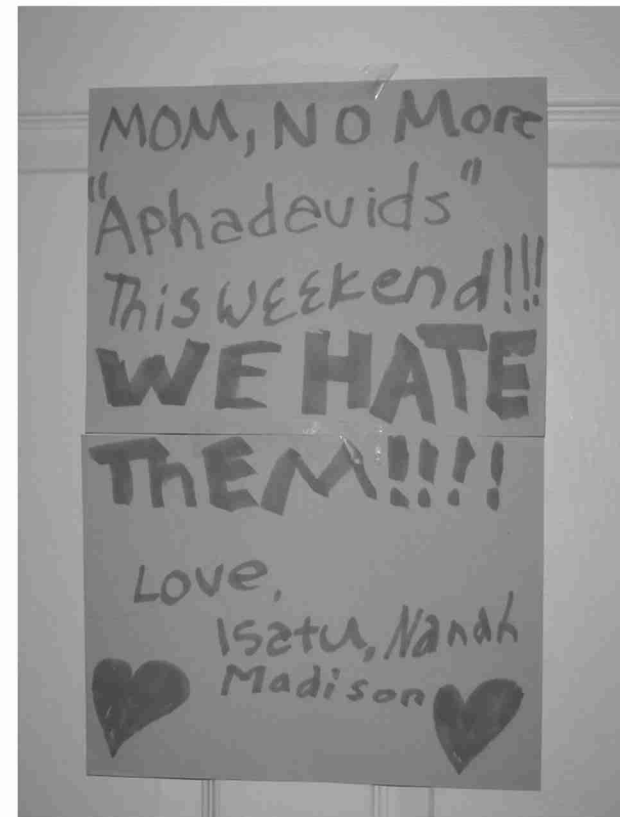 MOM, NO More
"Aphadavids"
This WEEKend!!!
WE HATE
ThEM!!!!
Love,
Isatu, Nanah
Madison